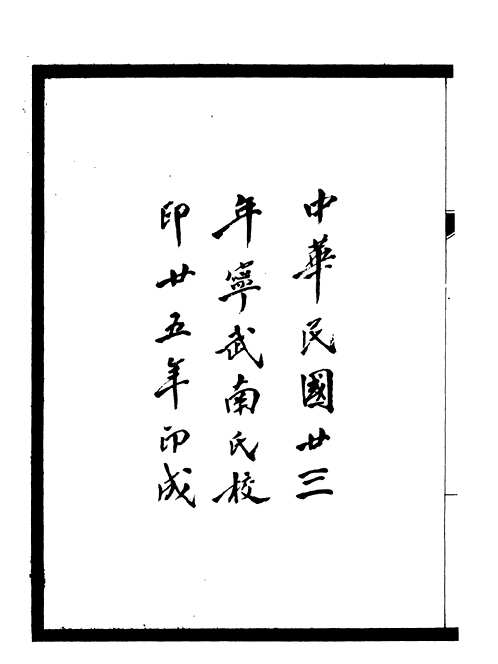 中華民國廿三
年寧武南氏校
印廿五年印成